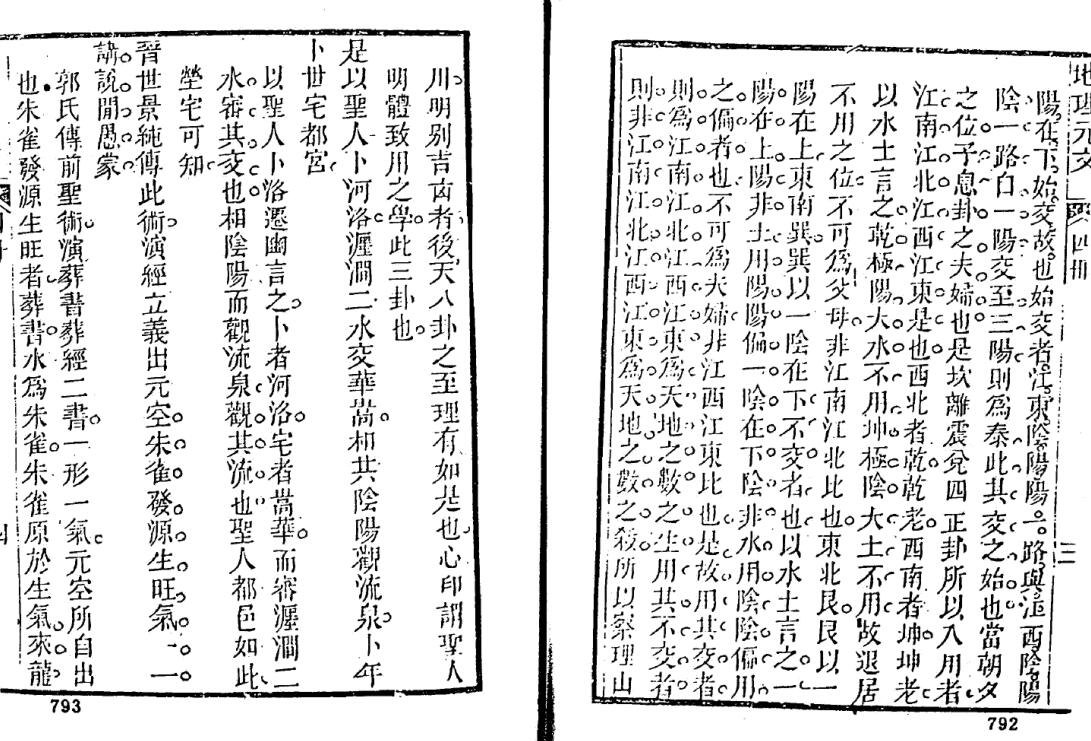 地理元文
四冊
三
陽在下始交故也始交者江東陰陽陽一路與江西陰陽
陰一路白一陽交至三陽則為泰此其交之始也當朝夕
之位予息卦之夫婦也是坎離震兌四正卦所以入用者
江南江北江西江東是也西北者乾乾老西南者坤坤老
以水土言之乾極陽大水不用坤極陰大土不用故退居
不用之位不可為父母非江南江北比也東北艮艮以一
陽在上東南巽巽以一陰在下不交者也以水土言之一
陽在上陽非土用陽陽偏一陰在下陰非水用陰陰偏用
之偏者也不可為夫婦非江西江東比也是故用其交者
則為江南江北江西江東為天地之數之生用其不交者
則非江南江北江西江東為天地之數之殺所以察理山
792
川明別吉凶者後天八卦之至理有如是也心印謂聖人
明體致用之學此三卦也
是以聖人卜河洛瀍澗二水交華嵩相共陰陽觀流泉卜年
卜世宅都宮
以聖人卜洛遷豳言之卜者河洛宅者嵩華而審瀍澗二
水審其交也相陰陽而觀流泉觀其流也聖人都邑如此
塋宅可知
晉世景純傳此術演經立義出元空朱雀發源生旺氣一一
講說開愚蒙
郭氏傳前聖術演葬書葬經二書一形一氣元空所自出
也朱雀發源生旺者葬書水為朱雀朱雀原於生氣來龍
793